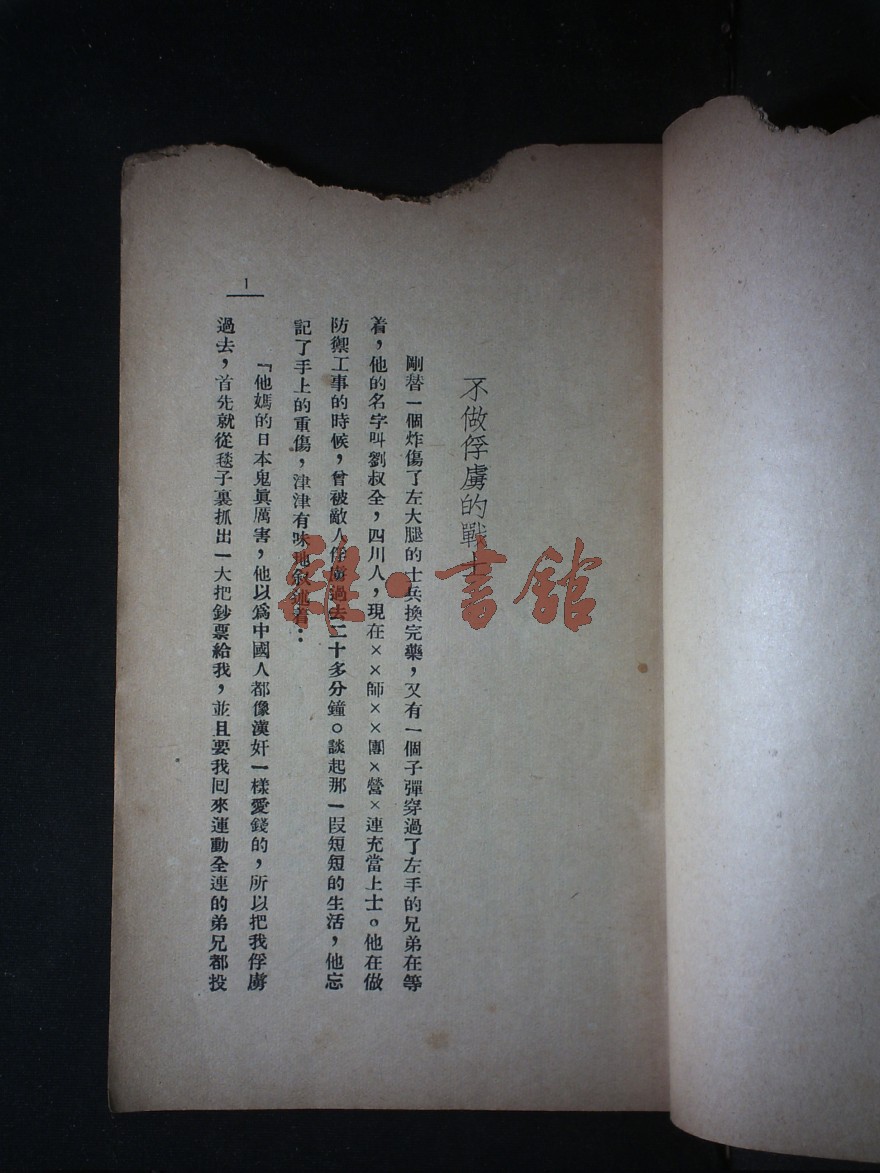 不做俘虜的戰士
剛替一個炸傷了左大腿的士兵換完藥，又有一個子彈穿過了左手的兄弟在等
着，他的名字叫劉叔全，四川人，現在××師××團×營×連充當上士。他在做
防禦工事的時候，曾被敵人俘虜過去二十多分鐘。談起那一段短短的生活，他忘
記了手上的重傷，津津有味地敍述着：
「他媽的日本鬼眞厲害，他以爲中國人都像漢奸一樣愛錢的，所以把我俘虜
過去，首先就從毯子裏抓出一大把鈔票給我，並且要我囘來運動全連的弟兄都投
1
雜·書館